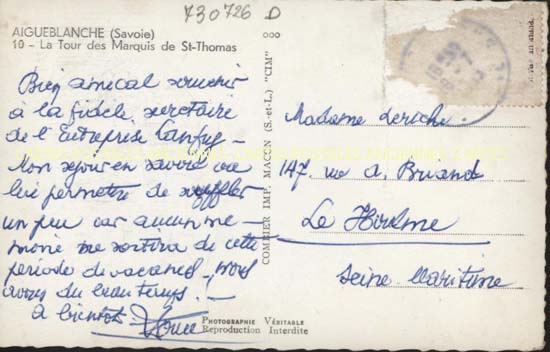 730726 D
AIGUEBLANCHE (Savoie)
10 - La Tour des Marquis de St-Thomas
Bien amical souvenir
à la fidèle secrétaire
de l'Entreprise
Mon séjour en Savoie va
lui permettre de souffler
un peu car aucun mé-
moire ne sortira de cette
période de vacances! nous
avons du beau temps!
à bientôt.
COMBIER IMP. MACON (S.-et-L.) "CIM"
Madame
147, rue A. Briand
Le Houlme
Seine Maritime
PHOTOGRAPHIE VÉRITABLE
Reproduction Interdite